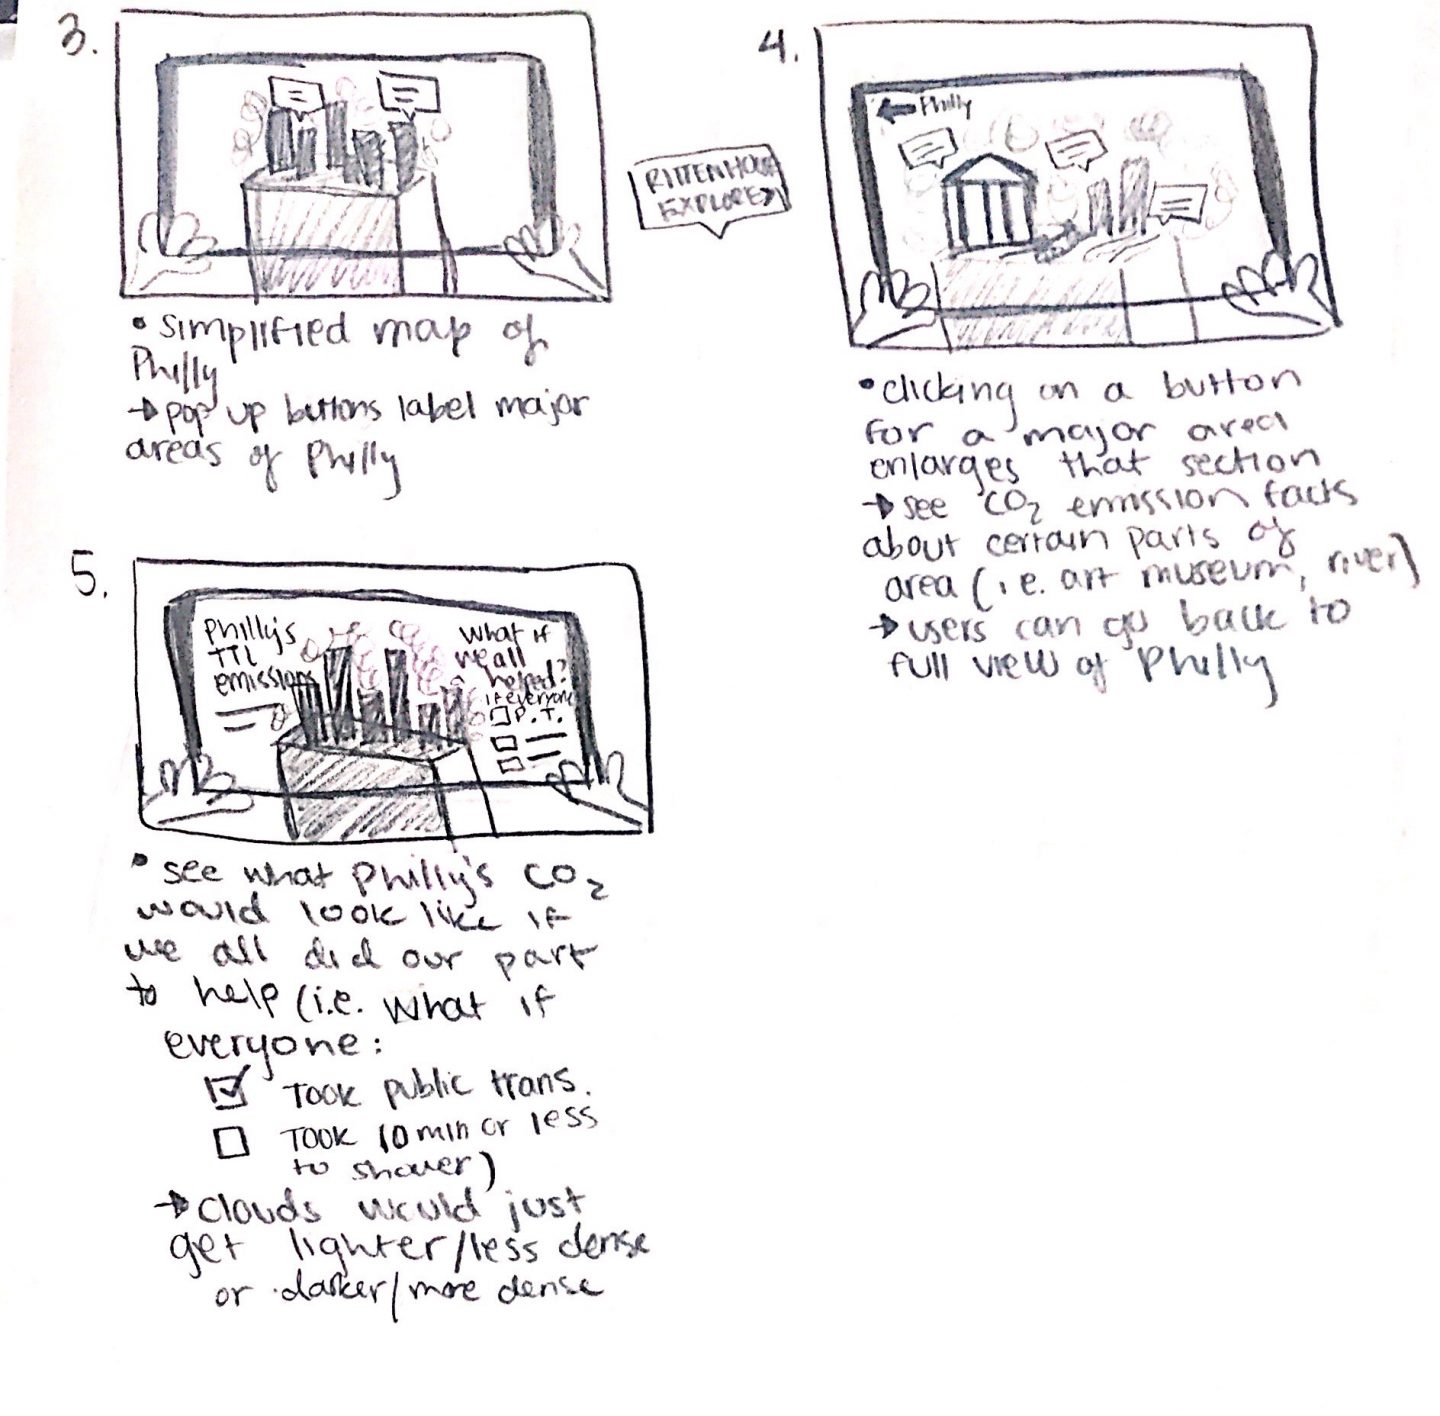 3.
• simplified map of
Philly
→ pop up buttons label major
areas of Philly
RITTENHOUSE
EXPLORE >
4.
← Philly
• clicking on a button
for a major area
enlarges that section
→ see CO2 emission facts
about certain parts of
area (i.e. art museum, river)
→ users can go back to
full view of Philly
5.
Philly's
TTL
emissions
What if
we all
helped?
if everyone
P.T.
• see what Philly's CO2
would look like if
we all did our part
to help (i.e. what if
everyone:
☑ Took public trans.
☐ Took 10 min or less
to shower)
→ clouds would just
get lighter/less dense
or darker/more dense